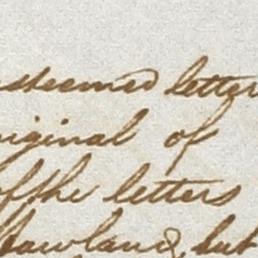 esteemed letter
original of
of the letters
Rowland, but